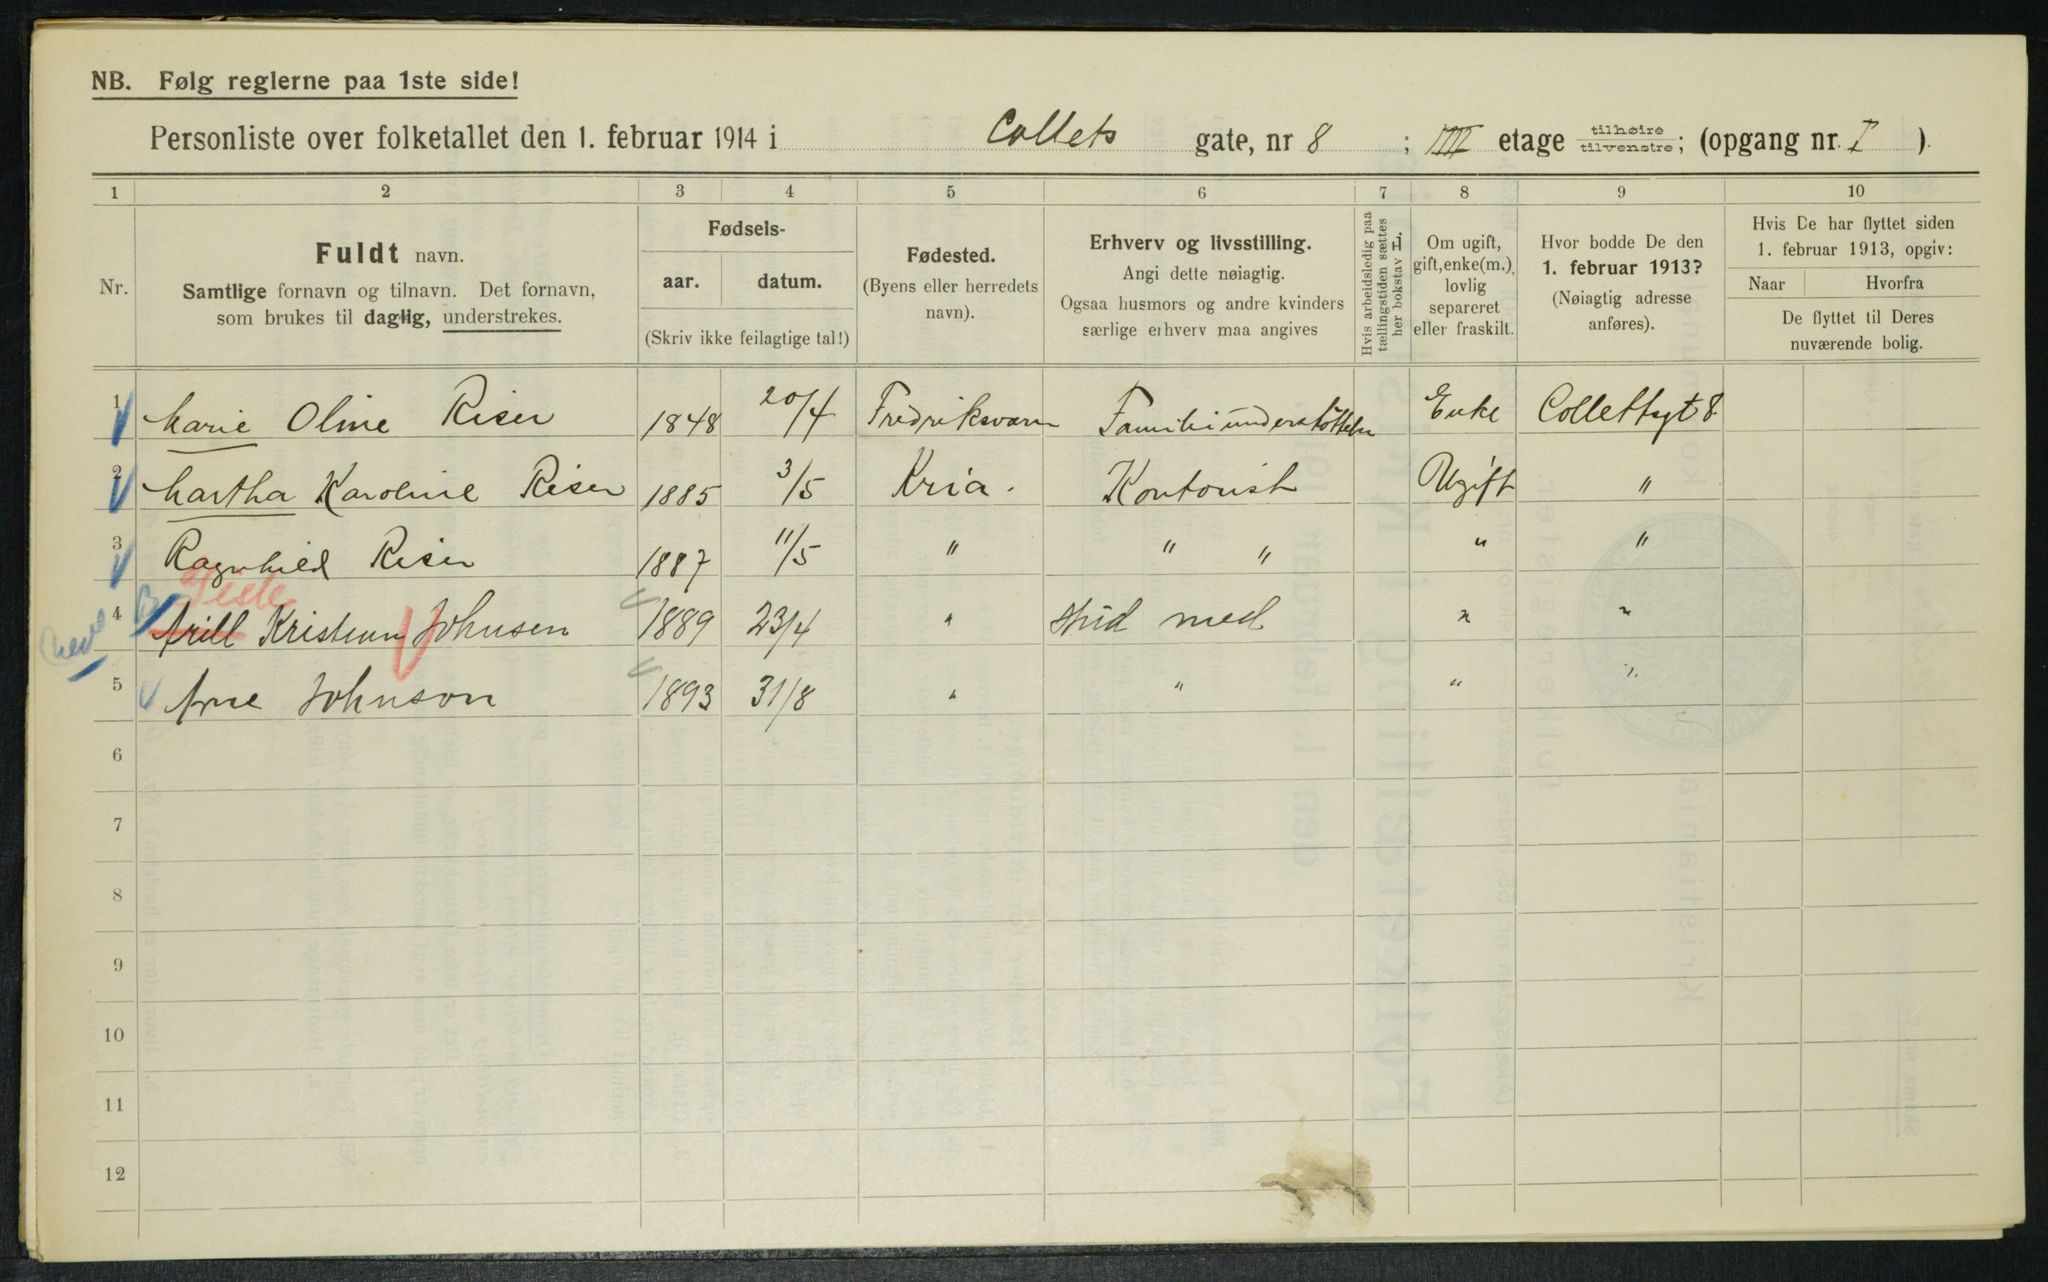 NB. Følg reglerne paa 1ste side!
Personliste over folketallet den 1. februar 1914 i Collets gate, nr 8 ; IIII etage tilhøire tilvenstre; (opgang nr. I ).
1 2 3 4 5 6 7 8 9 10
Nr.
Fuldt navn.
Samtlige fornavn og tilnavn. Det fornavn,
som brukes til daglig, understrekes.
Fødsels-
aar. datum.
(Skriv ikke feilagtige tal!)
Fødested.
(Byens eller herredets
navn).
Erhverv og livsstilling.
Angi dette nøiagtig.
Ogsaa husmors og andre kvinders
særlige erhverv maa angives
Hvis arbeidsledig paa
tællingstiden sættes
her bokstav L.
Om ugift,
gift, enke(m.),
lovlig
separeret
eller fraskilt.
Hvor bodde De den
1. februar 1913?
(Nøiagtig adresse
anføres).
Hvis De har flyttet siden
1. februar 1913, opgiv:
Naar Hvorfra
De flyttet til Deres
nuværende bolig.
1 Marie Oline Riser 1848 20/4 Fredriksværn Enke Collettsgt 8
2 Martha Karoline Riser 1885 3/5 Kria. Kontorist Ugift "
3 Ragnhild Riser 1887 11/5 " " " " "
4 Kristian Johnsen 1889 23/4 " stud med " "
5 Arne Johnson 1893 31/8 " " " "
6
7
8
9
10
11
12